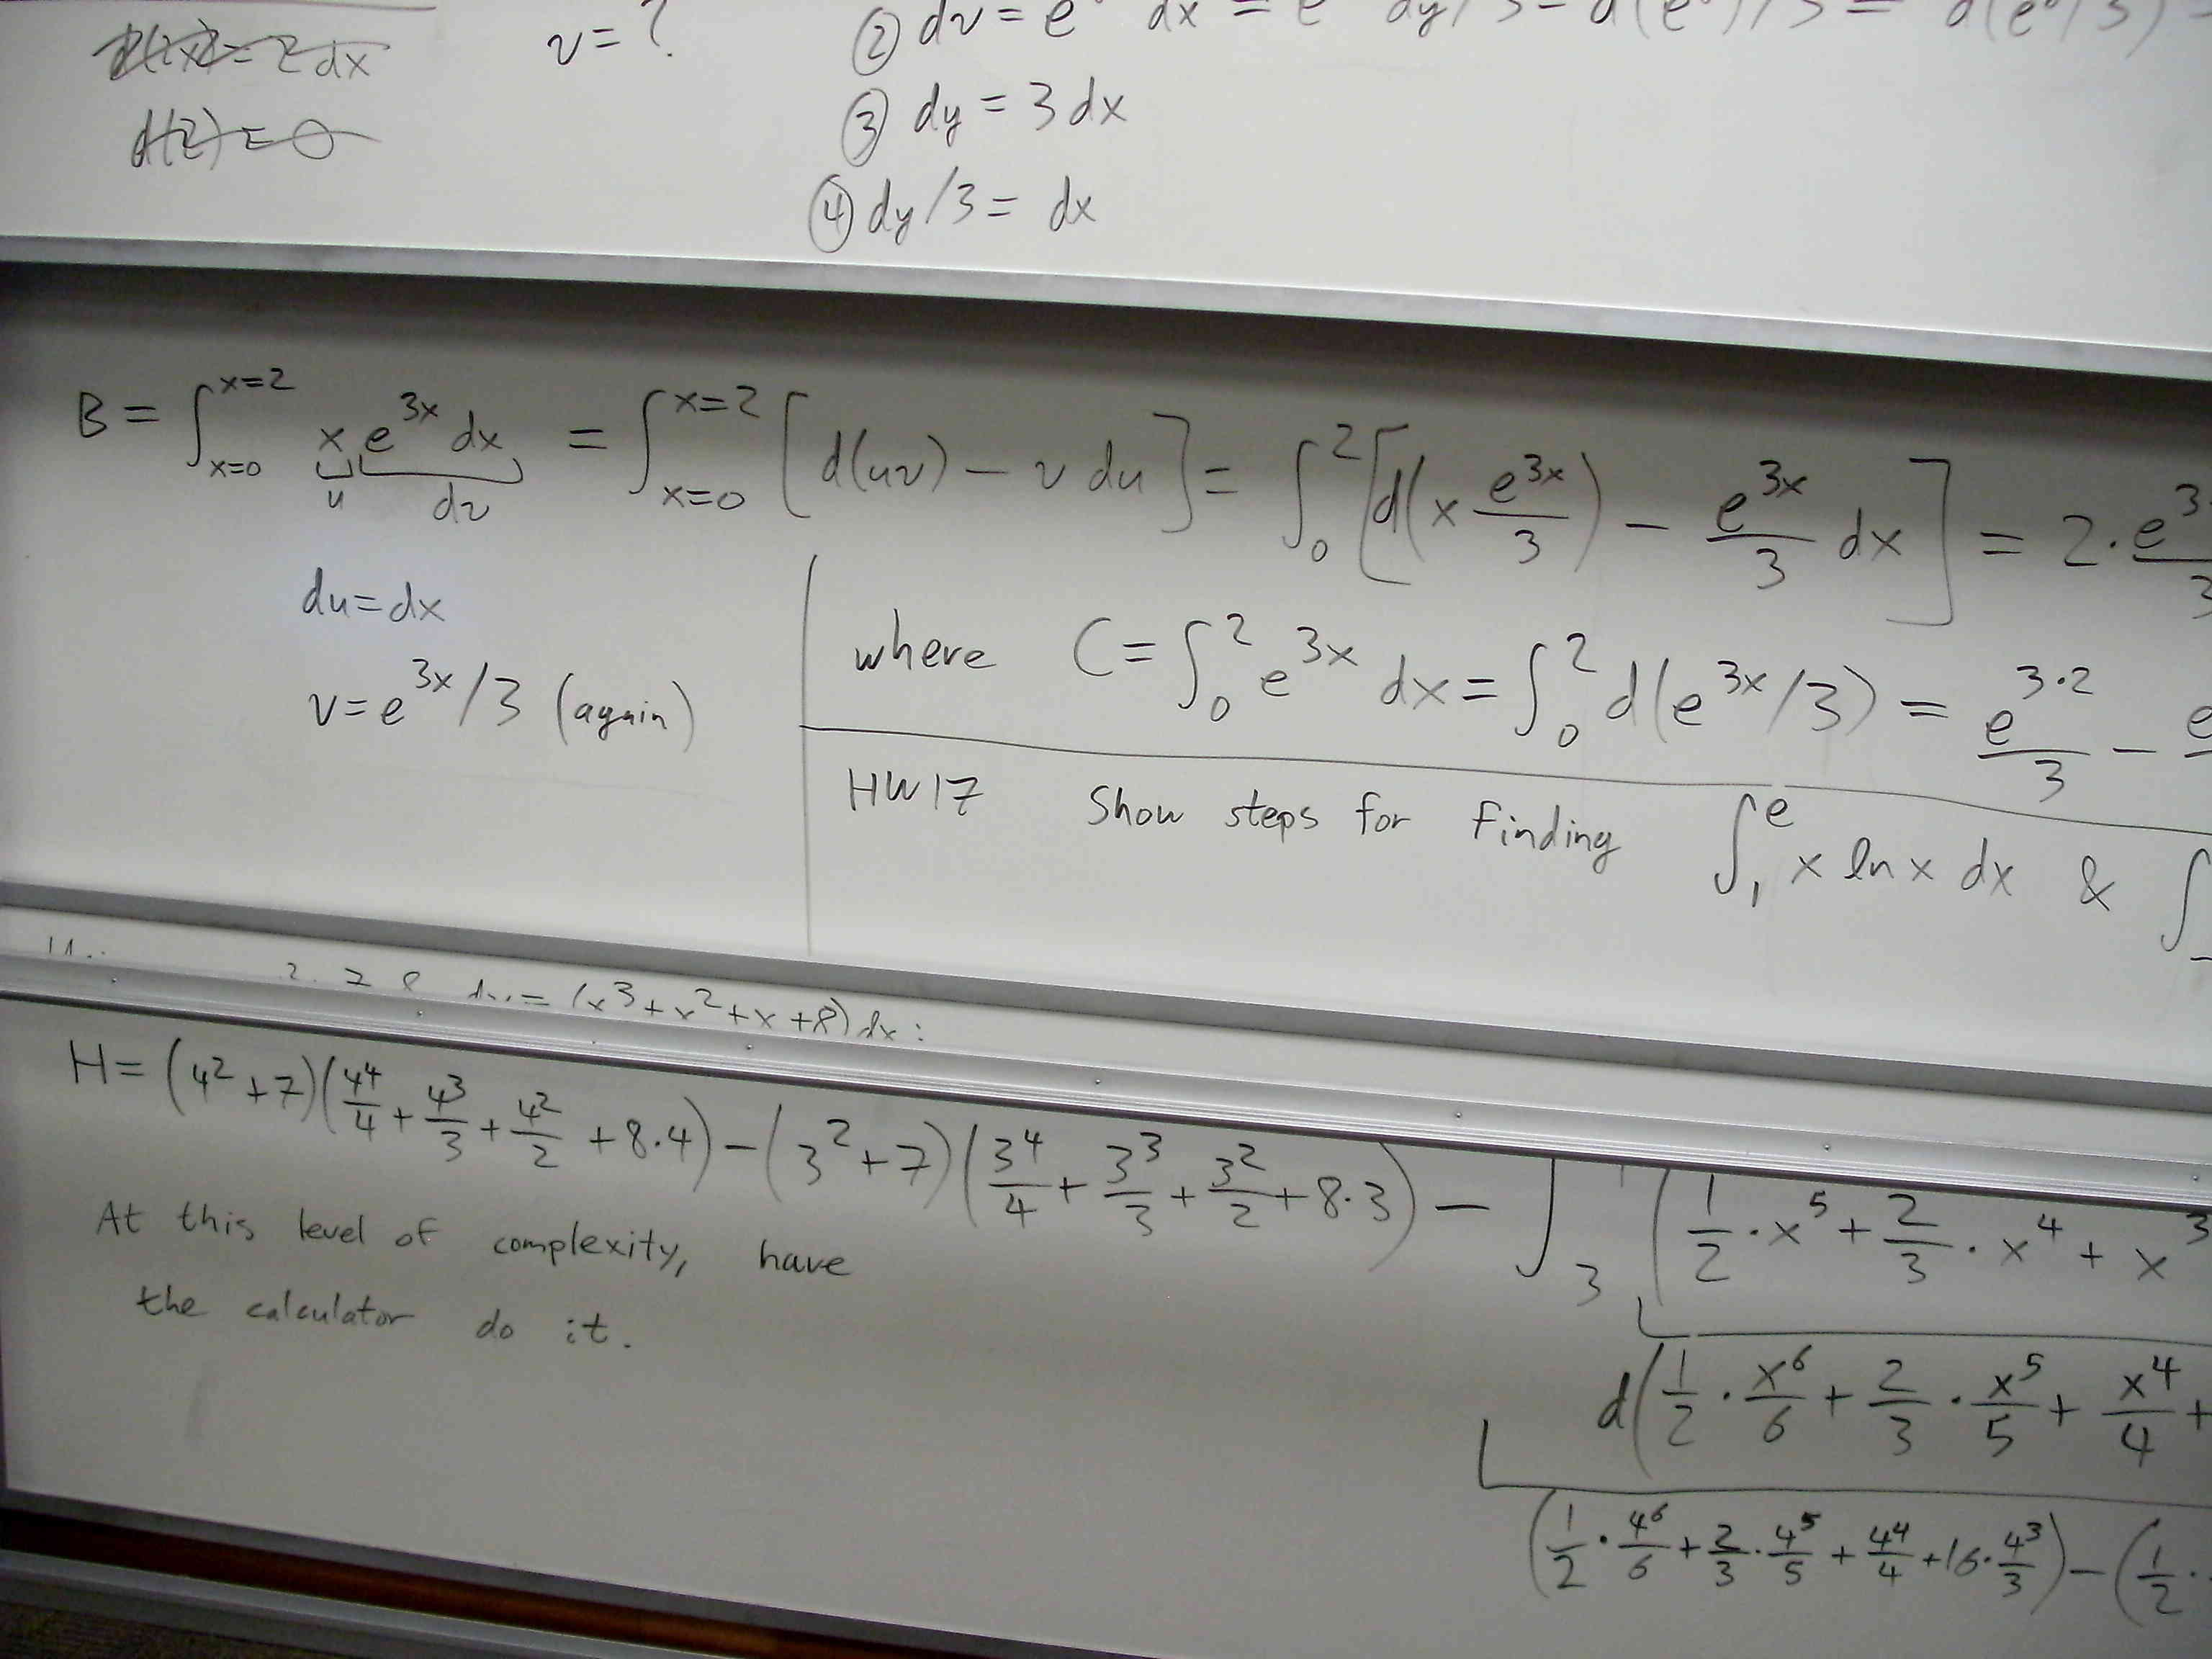 d(2x) = 2dx
v = ?
② dv = e dx = e dy/3 = d(e )/3 = d(e /3) =
d(2) = 0
③ dy = 3 dx
④ dy/3 = dx
B = ∫_{x=0}^{x=2} x e^{3x} dx = ∫_{x=0}^{x=2} [d(uv) − v du] = ∫_0^2 [d(x e^{3x}/3) − e^{3x}/3 dx] = 2·e^3/3
u dv
du = dx
v = e^{3x}/3 (again)
where C = ∫_0^2 e^{3x} dx = ∫_0^2 d(e^{3x}/3) = e^{3·2}/3 − e
HW17 Show steps for finding ∫_1^e x ln x dx & ∫
= (x^3 + x^2 + x + 8) dx:
H = (4^2 + 7)(4^4/4 + 4^3/3 + 4^2/2 + 8·4) − (3^2 + 7)(3^4/4 + 3^3/3 + 3^2/2 + 8·3) − ∫_3 (1/2·x^5 + 2/3·x^4 + x^3
At this level of complexity, have
the calculator do it.
d(1/2·x^6/6 + 2/3·x^5/5 + x^4/4 +
(1/2·4^6/6 + 2/3·4^5/5 + 4^4/4 + 16·4^3/3) − (1/2·